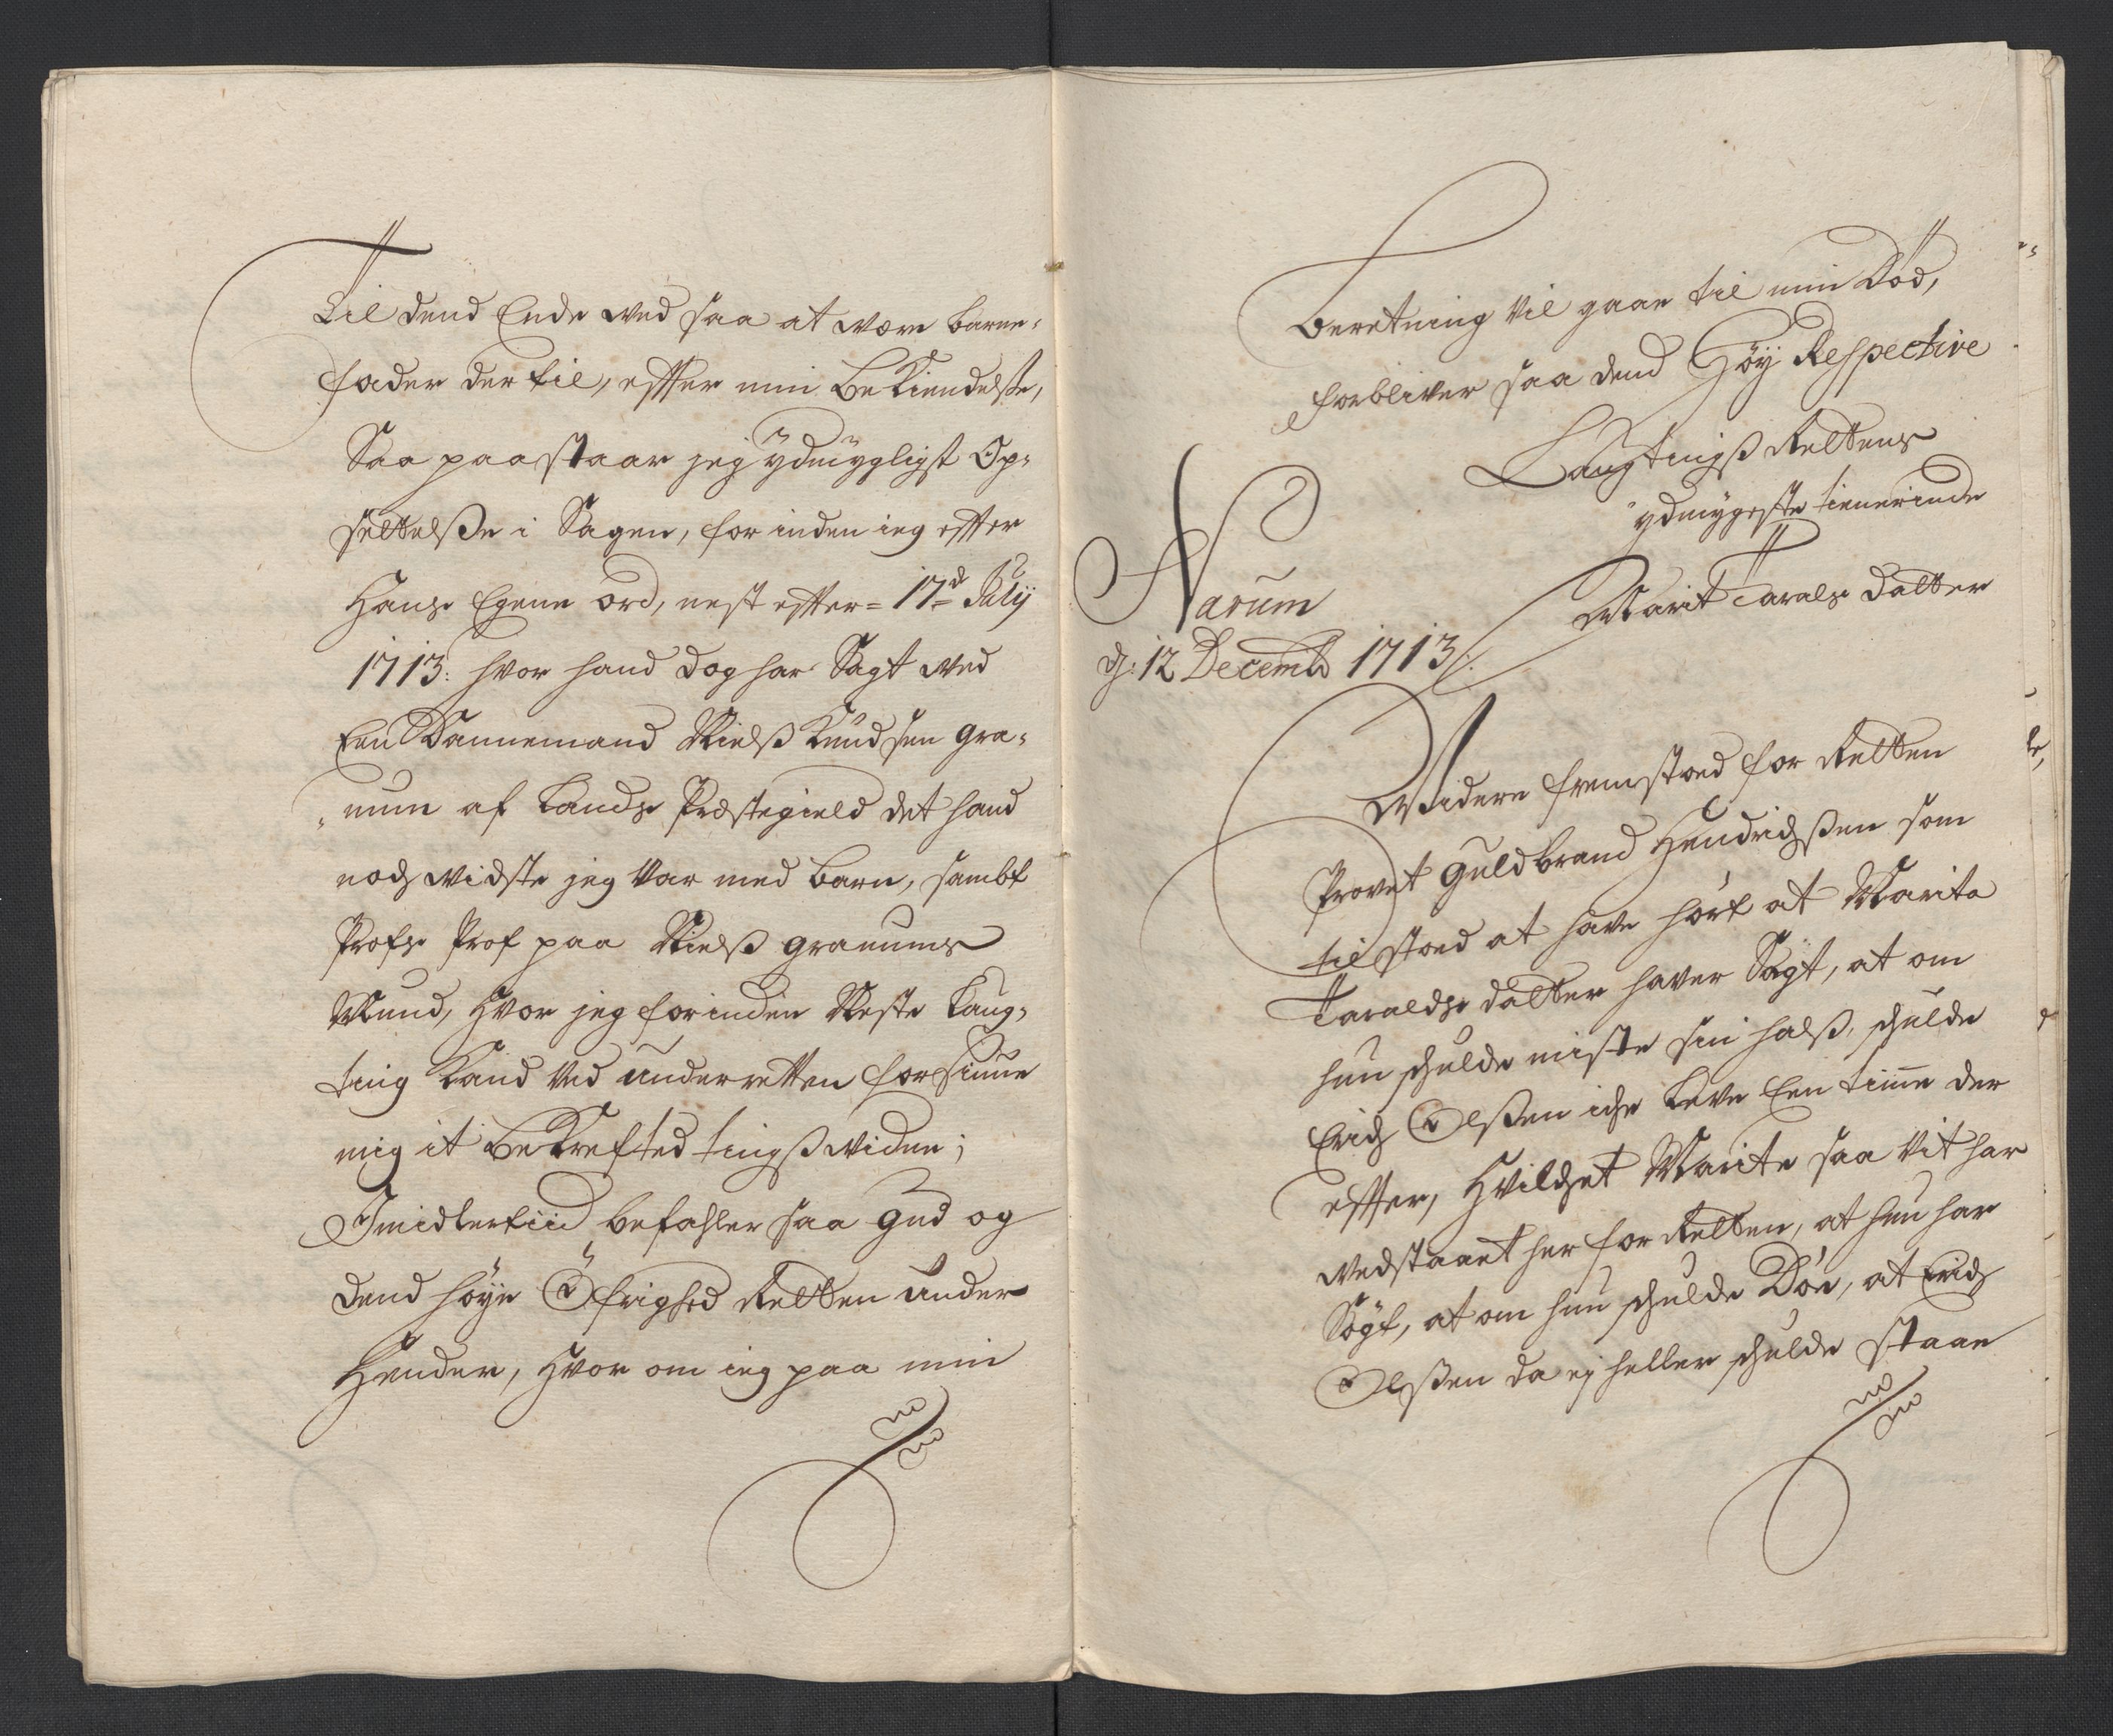 Til dend Ende ved saa at være barne-
fader der til, effter min bekiendelse,
Saa paastaar jeg ydmygligst Op-
settelsse i Sagen, for inden ieg effter
Hans Egene ord, nest effter = 17d July
1713: hvor hand dog har Sagt ved
Een Dannemand Nielss Knudsen Gra-
-num af Lands Præstegield det hand
noch vidste jeg var med barn, sambt
Profs Prof paa Nielss Granums
Mund, Hvor jeg forinden Neste Laug-
ting Kand ved underretten forsiune
mig it bekrefted tingssvidne;
Imidlertiid befahler saa Gud og
dend høye Øfrighed Retten under
Hender, Hvor om ieg paa min
beretning vil gaae til min Død,
forbliver saa dend Høy Respective
Laugtingss Rettens
ydmygeste tienerinde
Narum
Marit Tarals datter
d: 12 Decembr 1713/:
Widere fremstoed for Retten
Provet Guldbrand Hendrichssen som
tilstoed at have hørt at Marite
Taralds datter haver Sagt, at om
hun schulde miste sin halss, schulde
Erich Olssen iche Leve Een time der
effter, Hvilchet Marite saa vit har
vedstaaet her for Retten, at hun har
Sagt, at om hun schulde Døe, at Erich
Olssen da ej heller schulde staae